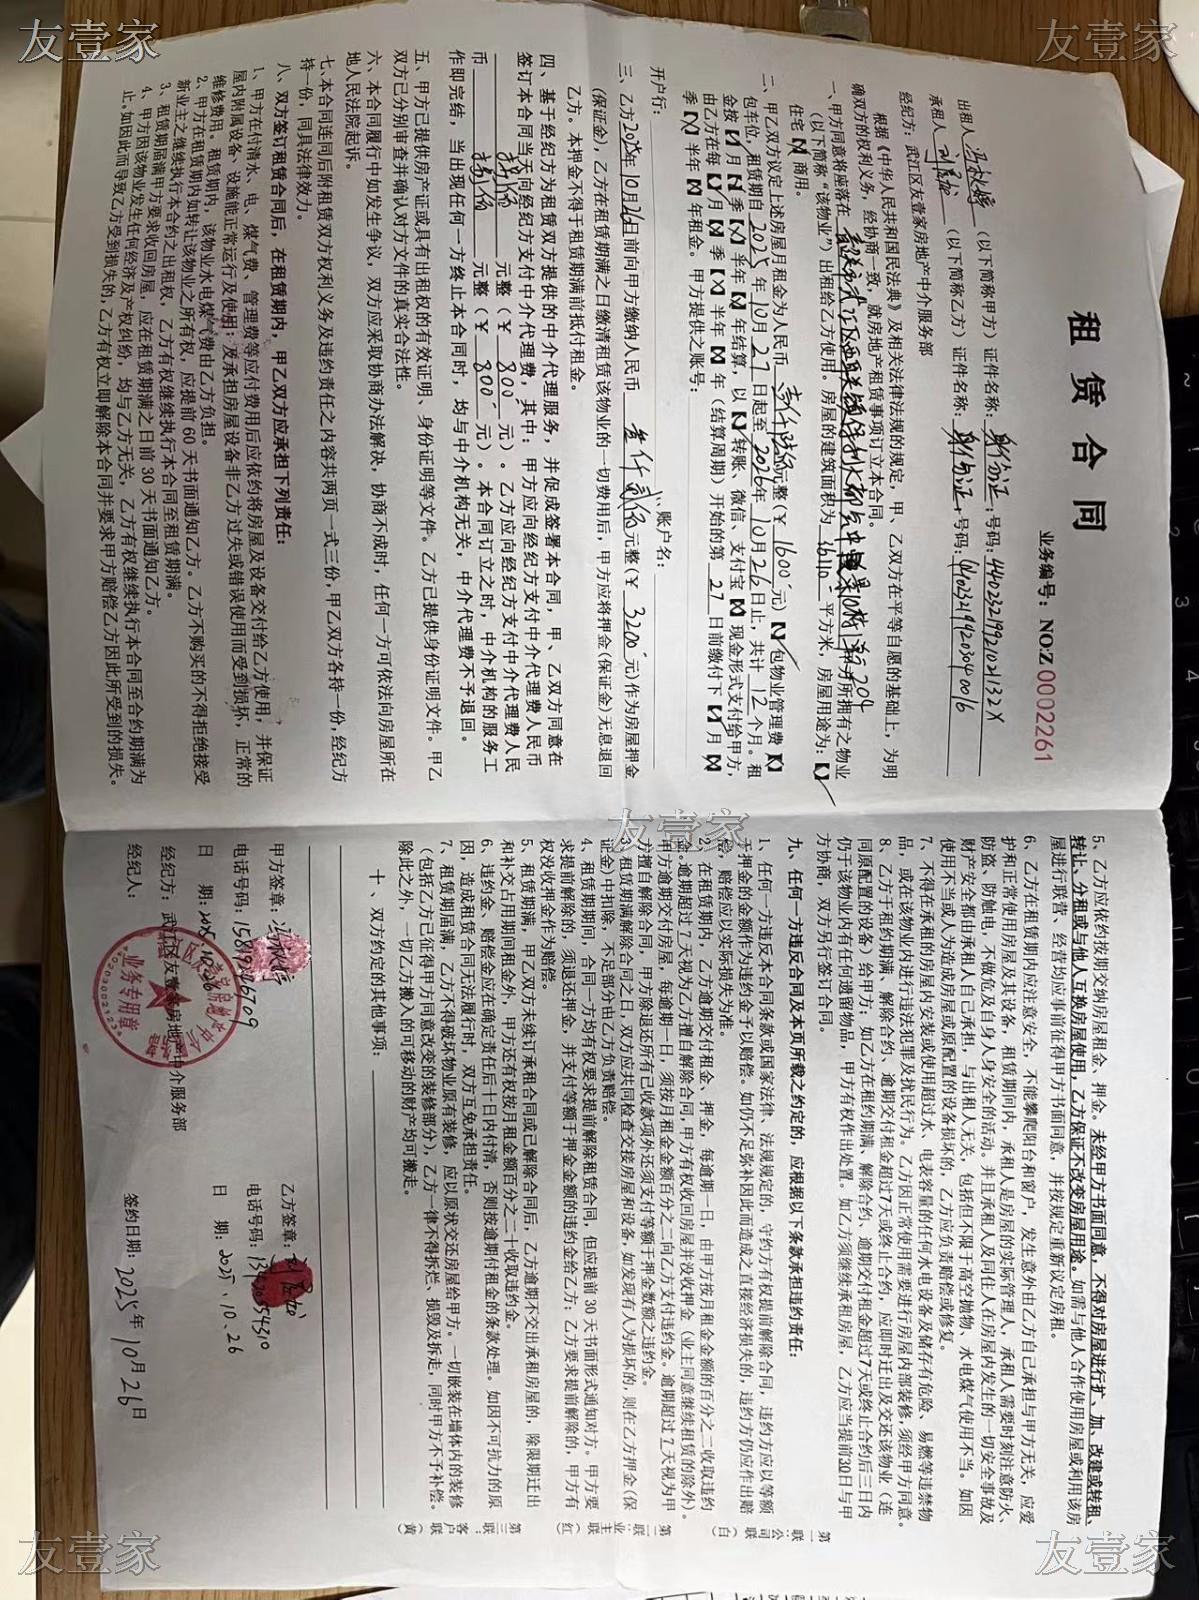 友壹家
友壹家
租赁合同
业务编号：NO:Z 0002261
出租人 （以下简称甲方）证件名称：身份证；号码：44023219921021132X
承租人 （以下简称乙方）证件名称：身份证；号码：
经纪方：武江区友壹家房地产中介服务部
根据《中华人民共和国民法典》及相关法律法规的规定，甲、乙双方在平等自愿的基础上，为明
确双方的权利义务，经协商一致，就房地产租赁事项订立本合同。
一、甲方同意将座落在 204 为甲方所拥有之物业
（以下简称“该物业”）出租给乙方使用。房屋的建筑面积为 平方米，房屋用途为：【✓】
住宅【】商用。
二、甲乙双方议定上述房屋月租金为人民币 壹仟陆佰元整（￥1600元）【】包物业管理费【】
包车位，租赁期自2025年10月27日起至2026年10月26日止，共计12个月。租
金按【】月【】季【】半年【】年结算，以【】转账、微信、支付宝【】现金形式支付给甲方，
由乙方在每【】月【】季【】半年【】年（结算周期）开始的第27日前缴付下【】月【】
季【】半年【】年租金。甲方提供之账号：
开户行： 账户名：
三、乙方2025年10月26日前向甲方缴纳人民币 叁仟贰佰元整（￥3200元）作为房屋押金
（保证金），乙方在租赁期满之日缴清租赁该物业的一切费用后，甲方应将押金（保证金）无息退回
乙方。本押金不得于租赁期满前抵付租金。
四、基于经纪方为租赁双方提供的中介代理服务，并促成签署本合同，甲、乙双方同意在
签订本合同当天向经纪方支付中介代理费，其中：甲方应向经纪方支付中介代理费人民币
捌佰 元整（￥800元）。乙方应向经纪方支付中介代理费人民
币 捌佰 元整（￥800元）。本合同订立之时，中介机构的服务工
作即完结，当出现任何一方终止本合同时，均与中介机构无关，中介代理费不予退回。
五、甲方已提供房产证或具有出租权的有效证明、身份证明等文件。乙方已提供身份证明文件。甲乙
双方已分别审查并确认对方文件的真实合法性。
六、本合同履行中如发生争议，双方应采取协商办法解决，协商不成时，任何一方可依法向房屋所在
地人民法院起诉。
七、本合同连同后附租赁双方权利义务及违约责任之内容共两页一式三份，甲乙双方各持一份，经纪方
持一份，同具法律效力。
八、双方签订租赁合同后，在租赁期内，甲乙双方应承担下列责任：
1、甲方在付清水、电、煤气费、管理费等应付费用后应依约将房屋及设备交付给乙方使用，并保证
屋内附属设备、设施能正常运行及使用；及承担房屋设备非乙方过失或错误使用而受到损坏，正常的
维修费用。租赁期内，该物业水电煤气费由乙方负担。
2、甲方在租赁期内如转让该物业之所有权，应提前60天书面通知乙方。乙方不购买的不得拒绝接受
新业主之继续执行本合约之出租权，乙方有权继续执行本合同至租赁期满。
3、租赁期届满甲方要求收回房屋，应在租赁期满之日前30天书面通知乙方。
4、甲方因该物业发生任何经济及产权纠纷，均与乙方无关，乙方有权继续执行本合同至合约期满为
止。如因此而导致乙方受到损失的，乙方有权立即解除本合同并要求甲方赔偿乙方因此所受到的损失。
友壹家
5、乙方应依约按期交纳房屋租金、押金。未经甲方书面同意，不得对房屋进行扩、加、改建或转租、
转让、分租或与他人互换房屋使用，乙方保证不改变房屋用途。如需与他人合作使用房屋或利用该房
屋进行联营、经营均应事前征得甲方书面同意，并按规定重新议定房租。
6、乙方在租赁期内应注意安全，不能攀爬阳台和窗户，发生意外由乙方自己承担与甲方无关，应爱
护和正常使用房屋及其设备，租赁期间内，承租人是房屋的实际管理人，承租人需要时刻注意防火、
防盗、防触电，不做危及自身人身安全的活动。并且承租人及同住人在房屋内发生的一切安全事故及
财产安全都由承租人自己承担，与出租人无关，包括但不限于高空抛物、水电煤气使用不当。如因
使用不当或人为造成房屋或原配置的设备损坏的，乙方应负责赔偿或修复。
7、不得在承租的房屋内安装或使用超过水、电表容量的任何水电设备及储存有危险、易燃等违禁物
品，或在该物业内进行违法犯罪及扰民行为。乙方因正常使用需要进行房屋内部装修，须经甲方同意。
8、乙方于租约期满、解除合约、逾期交付租金超过7天或终止合约，应即时迁出及交还该物业（连
同原配置的设备）给甲方；如乙方在租约期满、解除合约、逾期交付租金超过7天或终止合约后三日内
仍于该物业内有任何遗留物品，甲方有权作出处置。如乙方须继续承租房屋，乙方应当提前30日与甲
方协商，双方另行签订合同。
九、任何一方违反合同及本页所载之约定的，应根据以下条款承担违约责任：
1、任何一方违反本合同条款或国家法律、法规规定的，守约方有权提前解除合同，违约方应以等额
于押金的金额作为违约金予以赔偿。如仍不足弥补因此而造成之直接经济损失的，违约方仍应作出赔
偿，赔偿应以实际损失为准。
2、在租赁期内，乙方逾期交付租金、押金，每逾期一日，由甲方按月租金金额的百分之二收取违约
金。逾期超过7天视为乙方擅自解除合同，甲方有权收回房屋并没收押金（业主同意继续租赁的除外）。
甲方逾期交付房屋，每逾期一日，须按月租金金额百分之二向乙方支付违约金。逾期超过7天视为甲
方擅自解除合同，甲方除退还所有已收款项外还须支付等额于押金数额之违约金。
3、租赁期满解除合同之日，双方应共同检查交接房屋和设备，如发现有人为损坏的，则在乙方押金（保
证金）中扣除，不足部分由乙方负责赔偿。
4、租赁期期间，合同一方均有权要求提前解除租赁合同，但应提前30天书面形式通知对方。甲方要
求提前解除的，须退还押金，并支付等额于押金金额的违约金给乙方；乙方要求提前解除的，甲方有
权没收押金作为赔偿。
5、租赁期满，甲乙双方未续订承租合同或已解除合同后，乙方逾期不交出承租房屋的，除限期迁出
和补交占用期间租金外，甲方还有权按月租金额百分之二十收取违约金。
6、违约金、赔偿金应在确定责任后十日内付清，否则按逾期付租金的条款处理。如因不可抗力的原
因，造成租赁合同无法履行时，双方互免承担责任。
7、租赁期届满，乙方不得破坏物业原有装修，应以原状交还房屋给甲方。一切嵌装在墙体内的装修
（包括乙方已征得甲方同意改变的装修部分），乙方一律不得拆烂、损毁及拆走，同时甲方不予补偿。
除此之外，一切乙方搬入的可移动的财产均可搬走。
十、双方约定的其他事项：
甲方签章： 乙方签章：
电话号码： 电话号码：
日 期：2025.10.26 日 期：2025.10.26
经纪方：武江区友壹家房地产中介服务部
经纪人： 签约日期：2025年10月26日
业务专用章
第一联：公司联（白）
第二联：业主联（红）
第三联：客户联（黄）
友壹家
友壹家